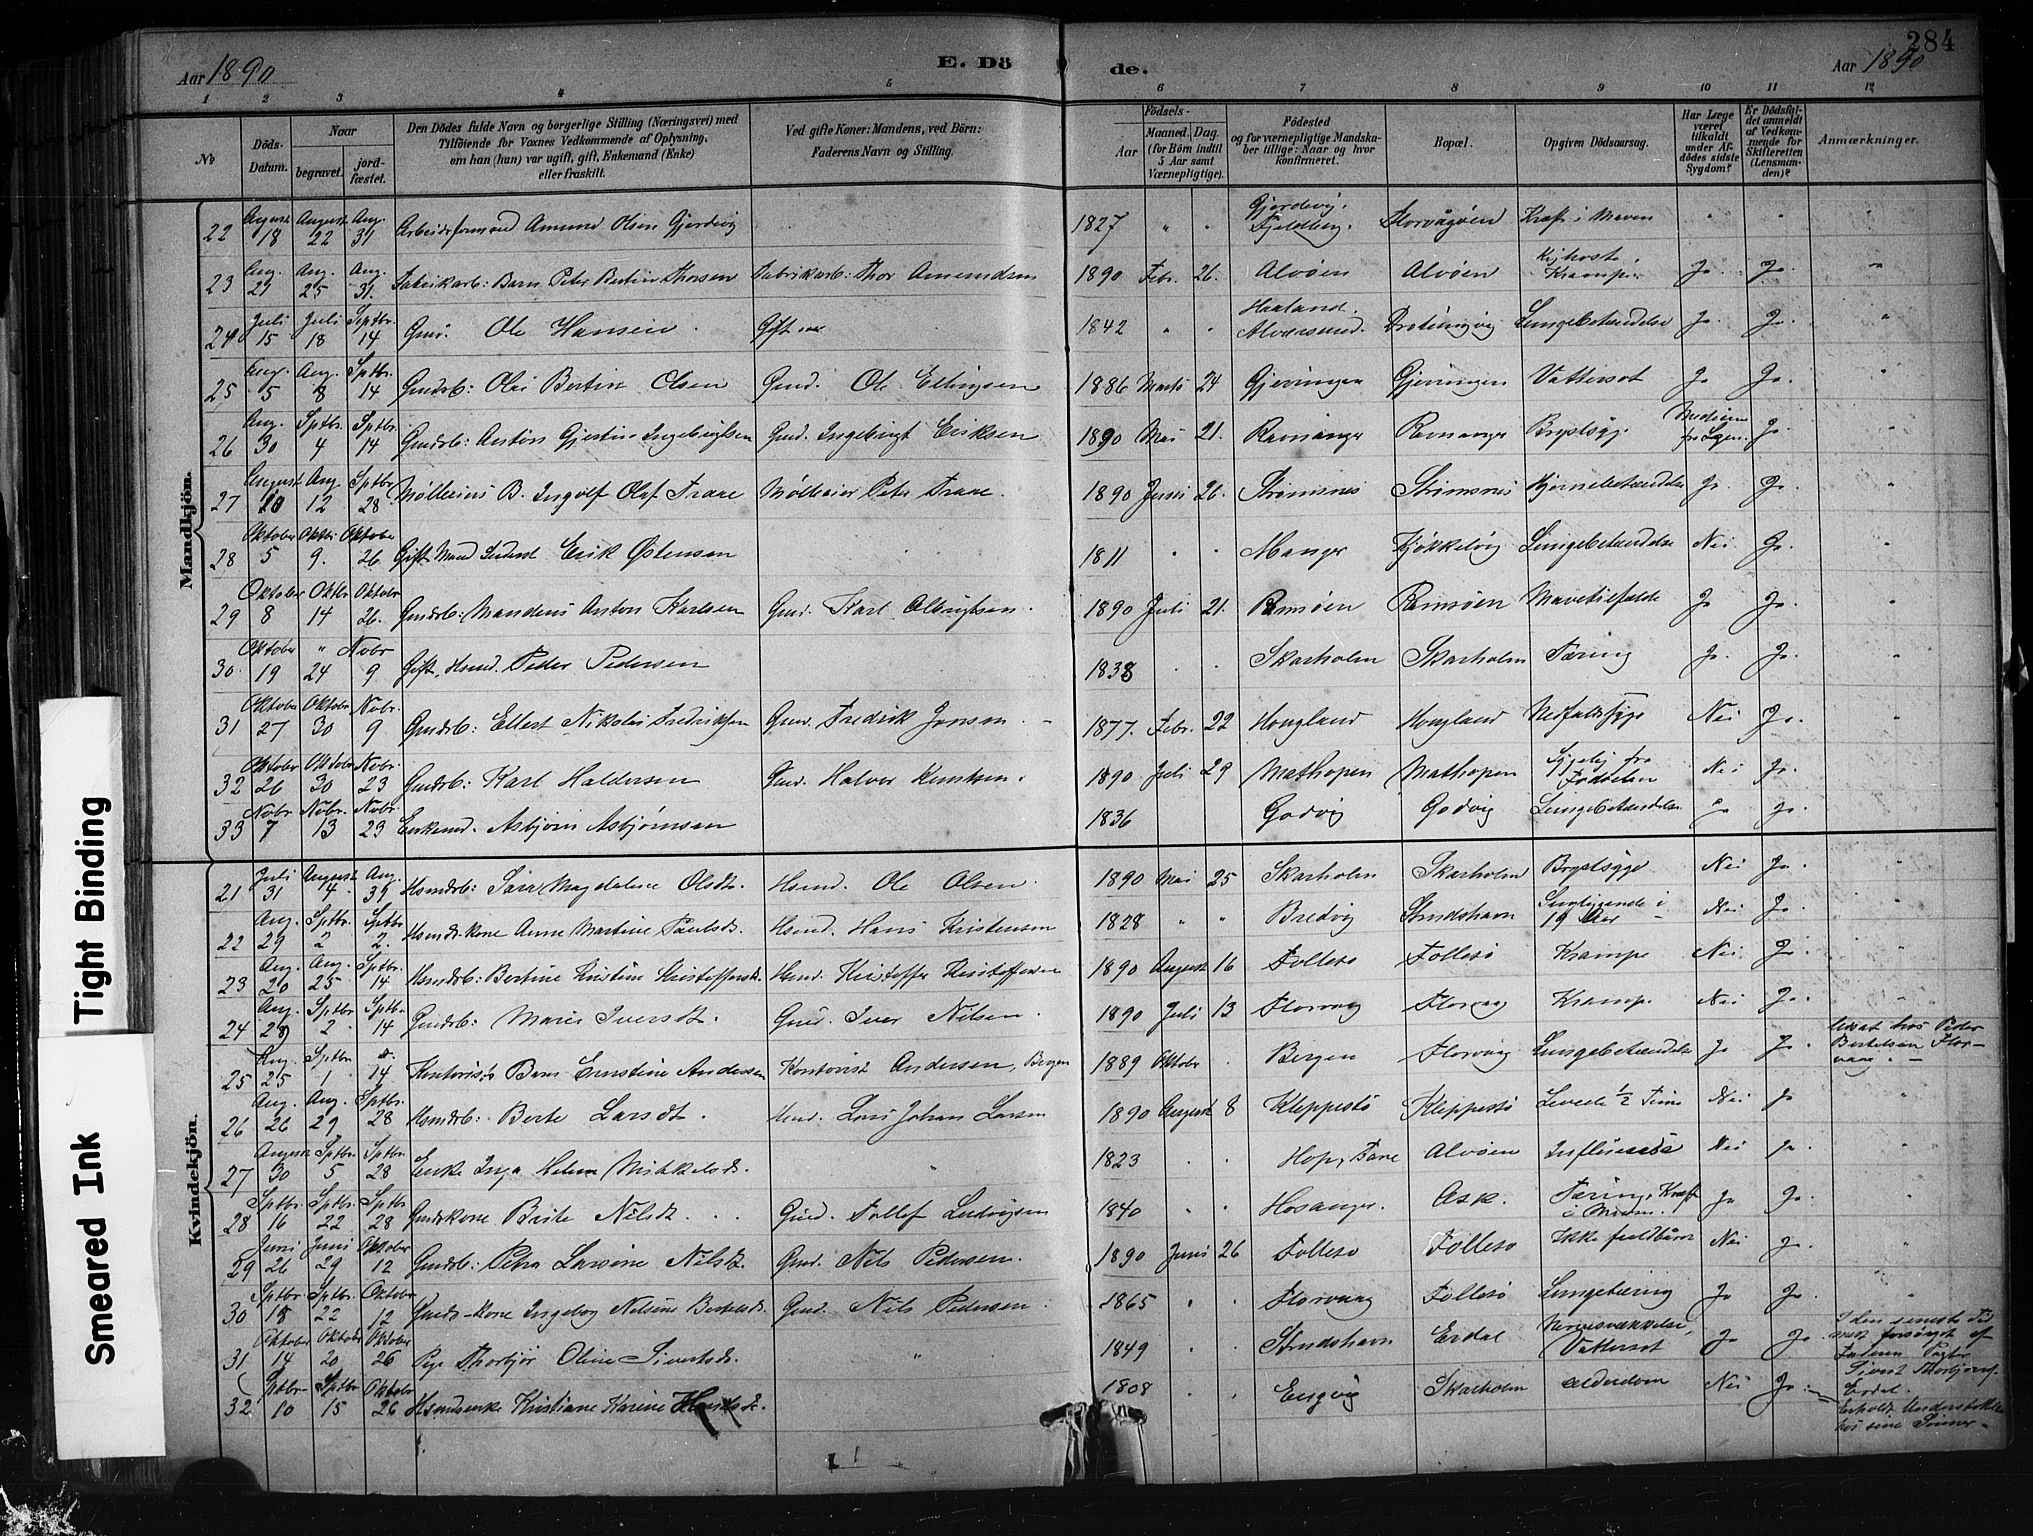 284
Aar 1890 E. Dö de. Aar 1890
1 2 3 4 5 6 7 8 9 10 11 12
No
Döds-Datum.
Naar
begravet.
jord-fæstet.
Den Dödes fulde Navn og borgerlige Stilling (Næringsvei) med
Tilföiende for Voxnes Vedkommende af Oplysning,
om han (hun) var ugift, gift, Enkemand (Enke)
eller fraskilt.
Ved gifte Koner: Mandens, ved Börn:
Faderens Navn og Stilling.
Födsels-
Aar
Maaned. Dag.
(for Börn indtil
5 Aar samt
Værnepligtige).
Födested
og for værnepligtige Mandska-
ber tillige: Naar og hvor
konfirmeret.
Bopæl.
Opgiven Dödsaarsag.
Har Læge
været
tilkaldt
under Af-
dödes sidste
Sygdom?
Er Dödsfal-
det anmeldt
af Vedkom-
mende for
Skifteretten
(Lensman-
den)?
Anmærkninger.
Mandkjön.
22 August 18 August 22 Aug. 31 Arbeidsformand Amund Olsen Gjerdevig 1827 " " Gjerdevig, Fjeldberg. Florvågöen Kræft i Maven " " "
23 Aug. 21 Aug. 25 Aug. 31. Fabrikarb: Barn Peter Bertin Thorsen Fabrikarb: Thor Amundsen 1890 Febr. 26. Alvöen Alvöen Kighoste, Krampe. Ja. Ja. "
24 Juli 15 Juli 18 Septbr. 14 Gmd. Ole Hansen. Gift 1842 " " Haaland. Alversund. Drotningvig Lungebetændelse Ja. Ja. "
25 Aug. 5 Aug. 8 Sptbr. 14 Gmdsb: Olai Bertin Olsen Gmd. Ole Ellingsen 1886 Marts 24 Gjerningen Gjerningen Vattersot Ja Ja. "
26 Aug. 30 Sptbr. 4 Sptbr. 14 Gmdsb: Anton Gjertin Ingebrigtsen Gmd. Ingebrigt Eriksen 1890 Mai 21. Ravnanger Ravnanger Brystsyge Medicin fra Lægen. Ja. "
27 August 10 Aug. 12 Sptbr 28 Møllerens B. Ingolf Olaf Traae Møllerier Peter Traae. 1890 Juni 26. Strømsnes Strømsnes Hjernebetændelse Ja. Ja. "
28 Oktober 5 Oktbr 9. Oktober 26 Gift Mand Inderst Erik Østensen 1811 " " Manger Kjøkkelvig Lungebetændelse Nei Ja. "
29 Oktober 8 Oktbr 14 Oktobr 26. Gmdsb: Mandius Anton Karlsen Gmd. Karl Olrigtsen. 1890 Juli 21. Ramsöen Ramsöen Mavetilfælde Ja Ja. "
30. Oktober 19 " 24 Novbr 9 Gift, Hsmd. Peder Pedersen 1838 Skarholm Skarholm Tæring Ja. Ja. "
31 Oktober 27 Oktobr 30 Nobr. 9 Gmdsb: Ellert Nikolai Fredriksen Gmd. Fredrik Jensen 1877. Febr. 22 Hougland Hougland Nedfaldssyge Nei Ja. "
32 Oktober 26 Oktobr 30 Nobr. 23 Gmdsb: Karl Haldorsen Gmd. Halvor Knutsen. 1890 Juli 29 Mathopen Mathopen Sygelig fra Födselen Nei Ja.
33 Nobr 7 Nobr. 13 Nobr 23 Enkemd. Asbjørn Asbjørnsen 1836 Godvig Godvig Lungebetændelse Ja Ja.
Kvindekjön.
21 Juli 31 August 4. Aug. 31 Hsmdsb: Sara Magdalene Olsdt. Hsmd. Ole Olsen. 1890 Mai 25 Skarholm Skarholm Brystsyge Nei Ja.
22 Aug. 29 Sptbr. 2 Sptbr. 2. Hsmdskone Anne Martine Paulsdt. Hsmd. Hans Kristensen 1828 " " Bredvig Strudshavn Sengliggende i 19 Aar Nei Ja.
23 Aug. 20 Aug. 25 Sptbr. 14 Hsmdsb: Bertine Kristine Kristoffersdt. Hsmd. Kristoffer Kristoffersen 1890 August 16 Follesø Follesø Krampe Nei Ja.
24 Aug. 28 Sptbr. 2 Sptbr. 14 Gmdsb: Marie Iversdt. Gmd. Iver Nilsen. 1890 Juli 13 Florvaag Florvaag Krampe Nei Ja.
25 Aug. 25 Sptbr 1 14 Kontorists Barn Ernstine Andersen Kontorist Andersen, Bergen 1889 Oktobr Bergen Florvåg Lungebetændelse Ja Ja. hos Peder Bertelsen Florvaag
26 Aug. 26 Aug. 29 Sptbr. 28 Hsmdsb: Berte Larsdt. Hsmd. Lars Johan Larsen 1890 August 8 Kleppestø Kleppestø Levede ½ Time Nei Ja "
27 August 30 Sptbr. 5 Sptbr. 28 Enke Inga Helena Mikkelsdt. " 1823 Hop, Fane Alvöen Influensa Nei Ja. "
28 Sptbr 16 Sptbr. 22 Sptbr 28 Gmdskone Brite Nilsdt Gmd. Tollef Ludvigsen 1840 Hosanger. Ask. Tæring, Kræft i Maven. Ja Ja. "
29 Juni 26 Juni 29 Oktober 12 Gmdsb: Petra Larsine Nilsdt. Gmd. Nils Pedersen. 1890 Juni 26 Follesø Follesø Ikke fuldbåren Nei Ja "
30 Sptbr 18 Sptbr. 22 Oktober 12 Gmds-kone Ingeborg Nelsine Bertelsdt. Gmd. Nils Pedersen 1865 " Florvaag Follesø Lungetæring Ja Ja "
31 Oktober 14 Oktober 20 Oktober 26 Pige Thorbjør Oline Sivertsdt. " 1849 Strudshavn Erdal Nervesvækkelse, Vattersot Ja Ja. I den seneste Tid mest forsørget af Faderen Sivert Thorbjørns. Erdal.
32 Sptbr 10 Sptbr 15 Oktober 26 Hsmdsenke Kristiane Karine Hansdt. 1808 Eugvig Skarholm Alderdom Nei Ja. Erholdt Understøttelse hos sine Sønner
Tight Binding
Smeared Ink